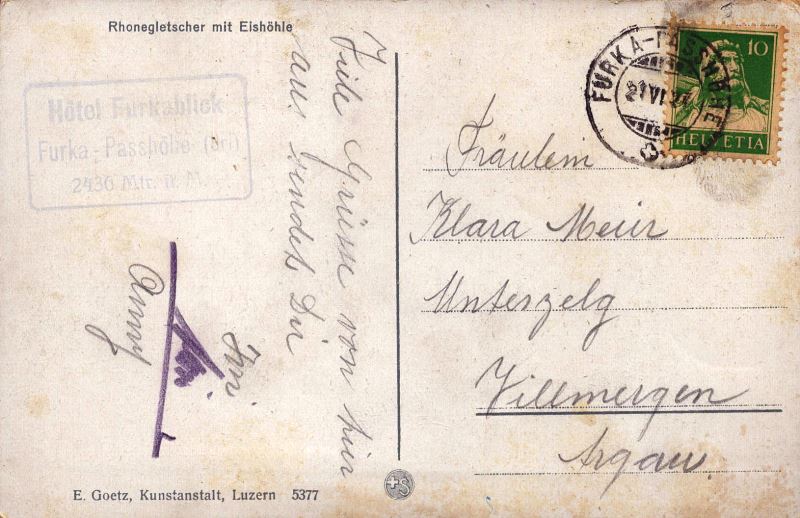 Rhonegletscher mit Eishöhle
Hôtel Furkablick
Furka-Passhöhe (Uri)
2436 Mtr. ü. M.
Viele Grüsse von hier
aus sendet Dir
Anny
FURKA-PASSHÖHE
21 VI 27
10
HELVETIA
Fräulein
Klara Meier
Unterzelg
Villmergen
Argau.
E. Goetz, Kunstanstalt, Luzern 5377
+S